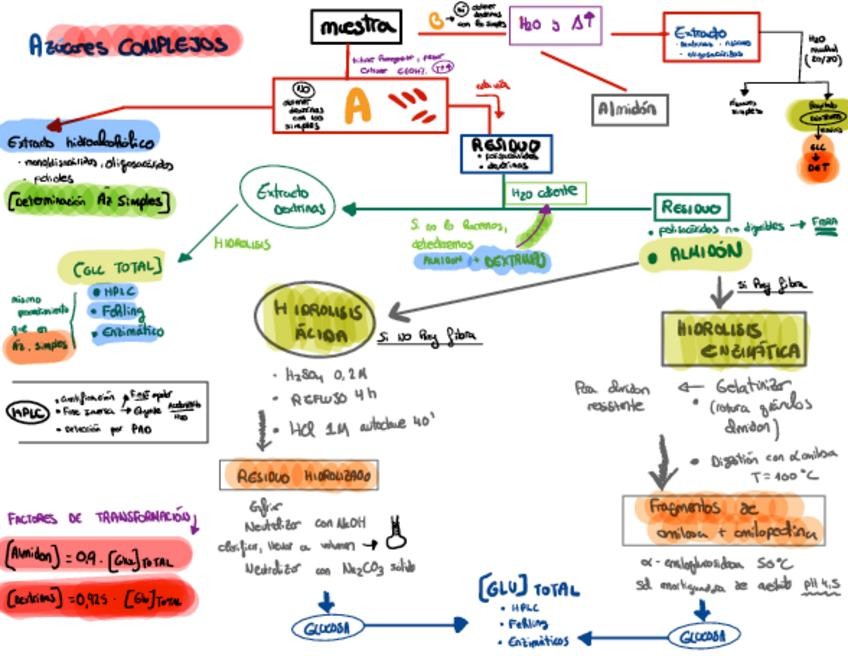 AZÚCARES COMPLEJOS
muestra
B → Sí obtener dextrinas con los simples
H2O y Δ↑
Extracto
oligosacáridos
H2O
Almidón
NO
obtener
dextrinas
con los
simples
A
RESIDUO
• polisacáridos
• dextrinas
simples
GLC
DET
Extracto hidroalcohólico
• monodisacáridos, oligosacáridos
• polioles
[Determinación Az Simples]
Extracto
Dextrinas
H2O caliente
HIDROLISIS
Si no lo hacemos,
detectaremos
ALMIDON + DEXTRINAS
RESIDUO
• polisacáridos no digeribles → FIBRA
• ALMIDÓN
[GLC TOTAL]
mismo
procedimiento
que en
Az. simples
• HPLC
• Fehling
• Enzimático
HIDROLISIS
ÁCIDA
Si NO hay fibra
Si hay fibra
HIDROLISIS
ENZIMÁTICA
• H2SO4 0,2 M
• REFLUJO 4 h
• HCl 1M autoclave 40'
Para almidon
resistente
← Gelatinizar
• (rotura gránulos
almidon)
• Digestión con α amilasa
T = 100 °C
HPLC
• Fase inversa →
Acetonitrilo
H2O
• Detección por PAD
RESIDUO HIDROLIZADO
Enfriar
Neutralizar con NaOH
clarificar, llevar a volumen →
Neutralizar con Na2CO3 solido
GLUCOSA
Fragmentos de
amilosa + amilopectina
α-amiloglucosidasa 50°C
sol amortiguadora de acetato pH 4,5
GLUCOSA
FACTORES DE TRANSFORMACIÓN
[Almidon] = 0,9 · [Glu] TOTAL
[Dextrinas] = 0,925 · [Glu] TOTAL
[GLU] TOTAL
• HPLC
• Fehling
• Enzimáticos